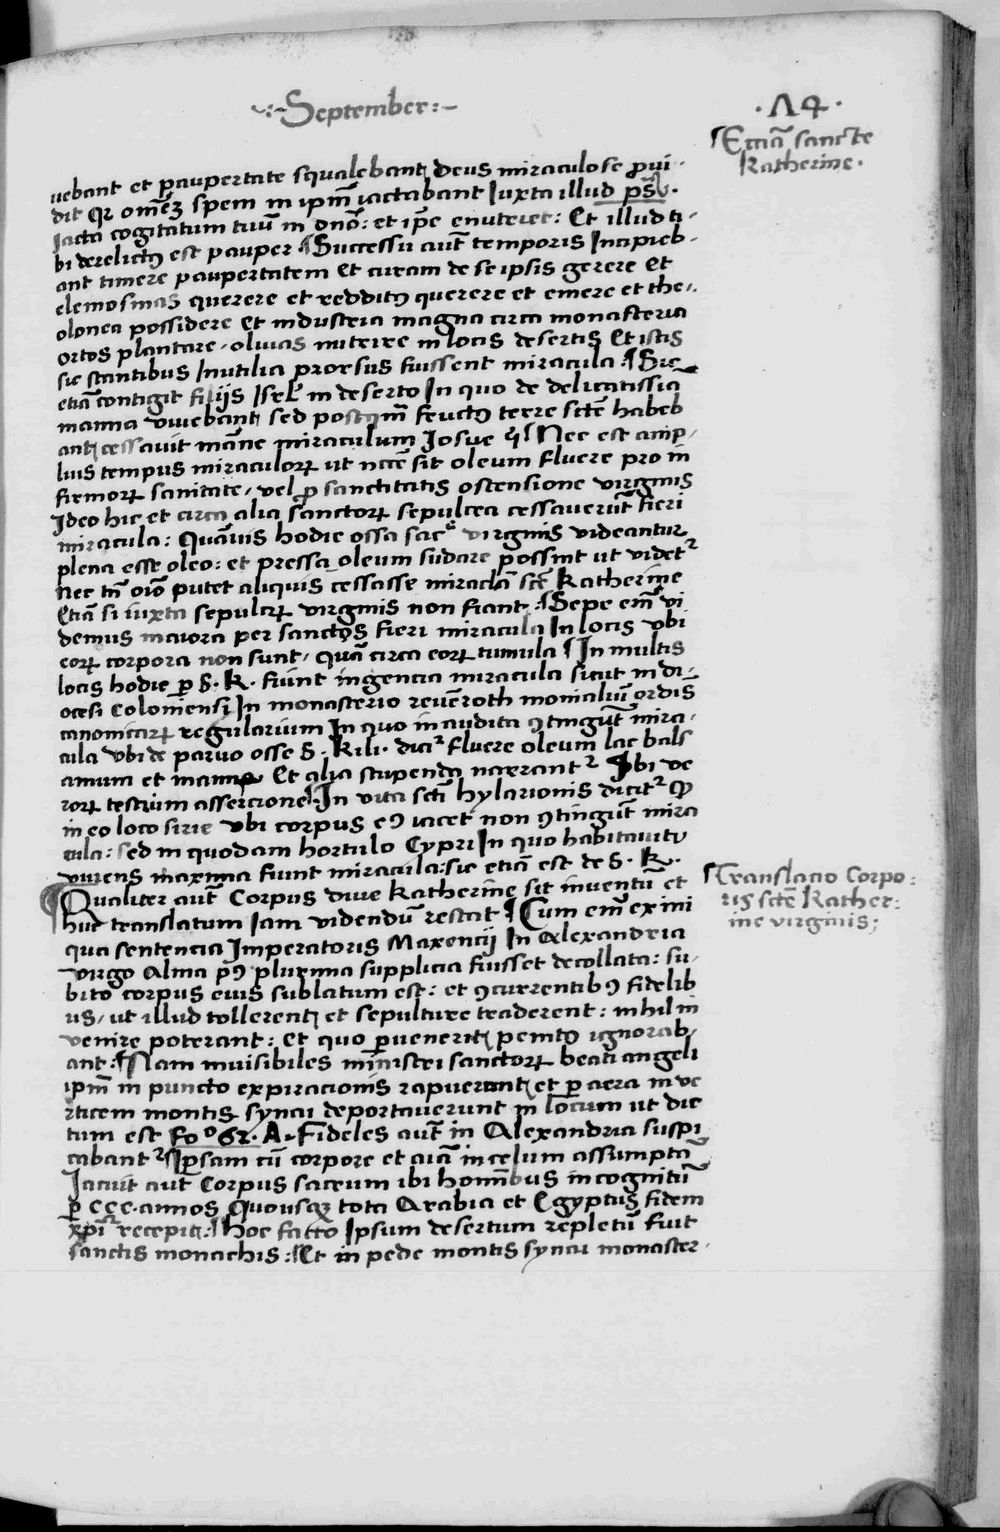 September
·74·
Etiã sancte
Katherine.
uebant et paupertate squalebant deus miraculose ꝓui-
dit qꝛ omẽȝ spem in ipm̃ iactabant Iuxta illud ps̃.
Iacta cogitatum tuũ in dno͂: et ip̃e enutriet: Et illud ti-
bi derelictꝰ est pauper ¶Successu aut̃ temporis Incipieb-
ant timere paupertatem Et curam de se ipsis gerere Et
elemosinas querere et redditꝰ querere et emere et the-
olonea possidere Et industria magna circa monasteria
ortos plantare, oliuas nutrire in locis desertis Et istis
sic stantibus Inutilia prorsus fuissent miracula ¶Sic
etiã contigit filijs Isr̃l in deserto In quo de delicatissia
manna viuebant sed postqm̃ fructꝰ terre scte͂ habeb
ant cessauit mãne miraculum Josue ¶Nec est amp-
lius tempus miraculorꝫ ut ncc̃e sit oleum fluere pro in
firmorꝫ sanitate, vel ꝓ sanctitatis ostensione virginis
Ideo hic et circa alia sanctorꝫ sepulcra cessauerũt fieri
miracula: Quãuis hodie ossa sacᵉ virginis videantur
plena esse oleo: et pressa oleum sudare possint ut videtᵣ
Nec tñ oĩo putet aliquis cessasse miracl̃a scte͂ Katherine
Etiã si iuxta sepulcrꝫ virginis non fiant: ¶Sepe em̃ vi
demus maiora per sanctos fieri miracula In locis vbi
eorꝫ corpora non sunt, quã circa eorꝫ tumula ¶In multis
locis hodie ꝑ S. K. fiunt ingencia miracula sicut in di-
ocesi Coloniensi In monasterio reuẽroth monialiũ ordĩs
canonicarꝫ regularium In quo inaudita ꝯtingũt mira-
cula vbi de paruo osse S. Kɫi. dicᵣ fluere oleum lac bals
amum et manna Et alia stupenda narrantᵣ Ibi ve
rorꝫ testium assercione ¶In vita scti hylarionis dicitᵣ ꝙ
in eo loco sirie vbi corpus eꝰ iacet non ꝯtingũt mira
cula: sed in quodam hortulo Cypri In quo habitauit
viuens maxima fiunt miracula: sic etiã est de S. K.
Translacio Corpo:
ris scte͂ Kather:
ine virginis;
¶Qualiter aut̃ Corpus diue Katherine sit inuentũ et
huc translatum Iam videndũ restat ¶Cum em̃ ex ini
qua sentencia Imperatoris Maxencij In Alexandria
virgo Alma pꝰ plurima supplicia fuisset decollata: su-
bito corpus eius sublatum est: et ꝯcurrentibꝰ fidelib
us, ut illud tollerent et sepulture traderent: nihil in
venire poterant: Et quo ꝑuenerit penitꝰ ignorab-
ant: ¶Nam inuisibiles ministri sanctorꝫ beati angeli
ipm̃ in puncto expiracionis rapuerunt et ꝑ aera in ve
rticem montis synai deportauerunt in locum ut dic
tum est Foº 62. A. Fideles aut̃ in Alexandria suspi
cabantᵣ ipsam cũ corpore et aĩa in celum assumptã
Iacuit aut̃ Corpus sacrum ibi hominibus incognitũ
ꝑ CCC. annos Quousqꝫ tota Arabia et Egyptus fidem
xp̃i recepit: ¶Hoc facto Ipsum desertum repletũ fuit
sanctis monachis: ¶Et in pede montis synai monaster-